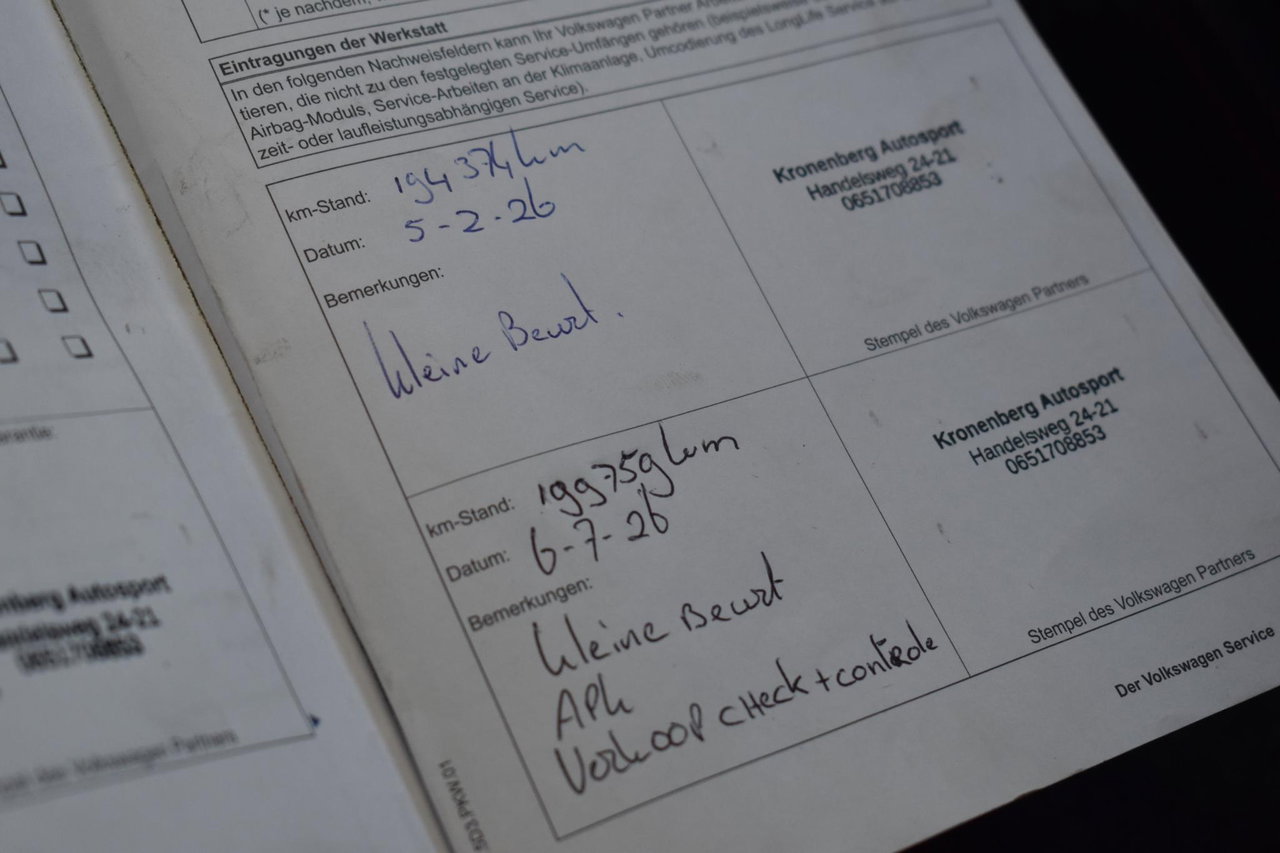 (* je nachdem,
Eintragungen der Werkstatt
In den folgenden Nachweisfeldern kann Ihr Volkswagen Partner
tieren, die nicht zu den festgelegten Service-Umfängen gehören (beispielsweise
Airbag-Moduls, Service-Arbeiten an der Klimaanlage, Umcodierung des LongLife Service
zeit- oder laufleistungsabhängigen Service).
km-Stand: 194 374 km
Datum: 5-2-26
Bemerkungen:
kleine Beurt.
Kronenberg Autosport
Handelsweg 24-21
0651708853
Stempel des Volkswagen Partners
km-Stand: 199759 km
Datum: 6-7-26
Bemerkungen:
kleine Beurt
APK
Verkoop cHeck + controle
Kronenberg Autosport
Handelsweg 24-21
0651708853
Stempel des Volkswagen Partners
Der Volkswagen Service
5D3.PKW.01
arantie:
nberg Autosport
ndelsweg 24-21
0651708853
des Volkswagen Partners